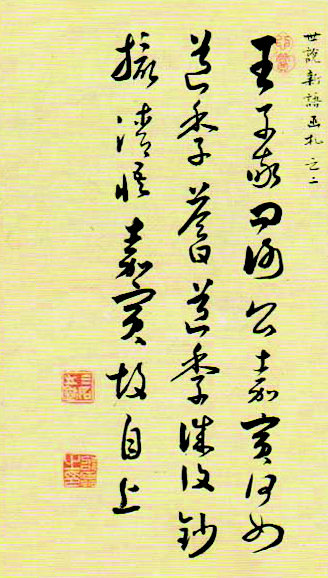 世説新語札之二
王子敬問謝公嘉賓何如
道季答曰道季誠復鈔
撮清悟嘉賓故自上